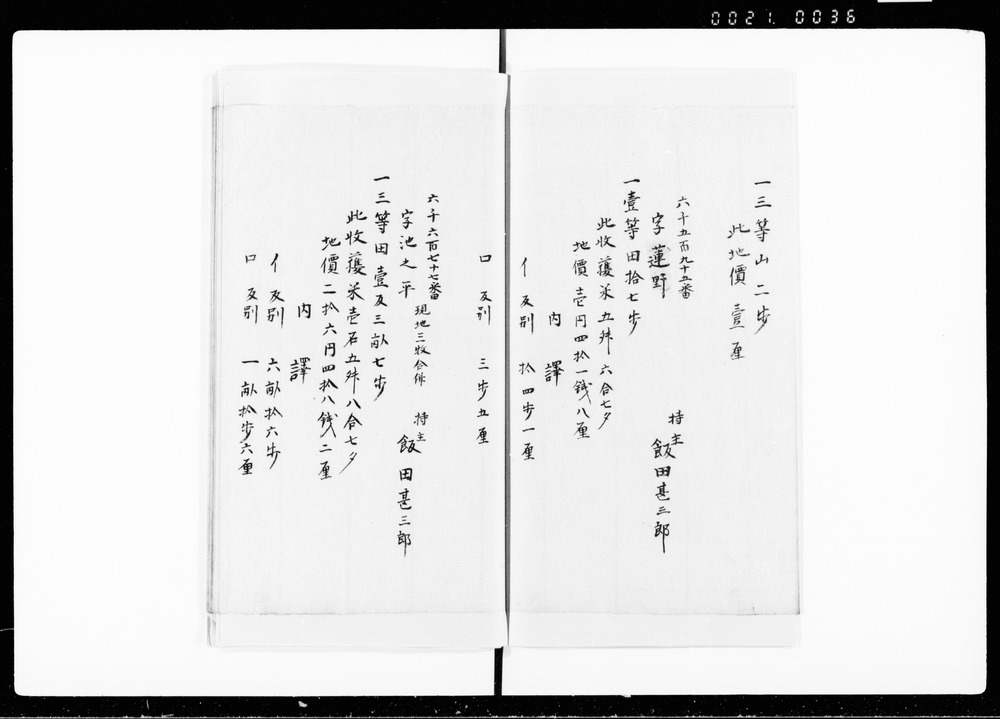 0021. 0036
一三等山 二歩
此地價 壹厘
六千五百九十五番
字蓮野 持主 飯田甚三郎
一壹等田拾七歩
此收獲米五舛六合七夕
地價壱円四拾一銭八厘
内譯
イ 反別 拾四歩一厘
ロ 反別 三歩五厘
六千六百七十七番
字池之平 現地三枚合併 持主 飯田甚三郎
一三等田壹反三畝七歩
此收獲米壱石五舛八合七夕
地價二拾六円四拾八銭二厘
内譯
イ 反別 六畝拾六歩
ロ 反別 一畝拾歩六厘